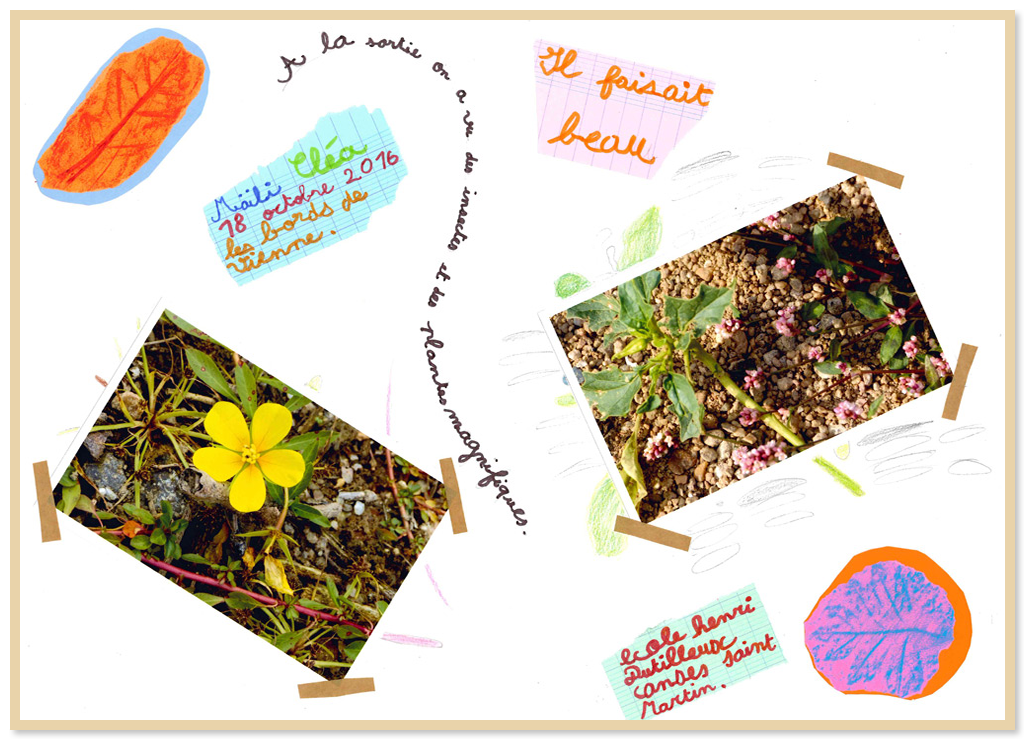 A la sortie on a vu des insectes et des plantes magnifiques.
Il faisait
beau
Maïli Cléa
18 octobre 2016
les bords de
Vienne.
ecole henri
Dutilleux
Candes Saint
Martin.